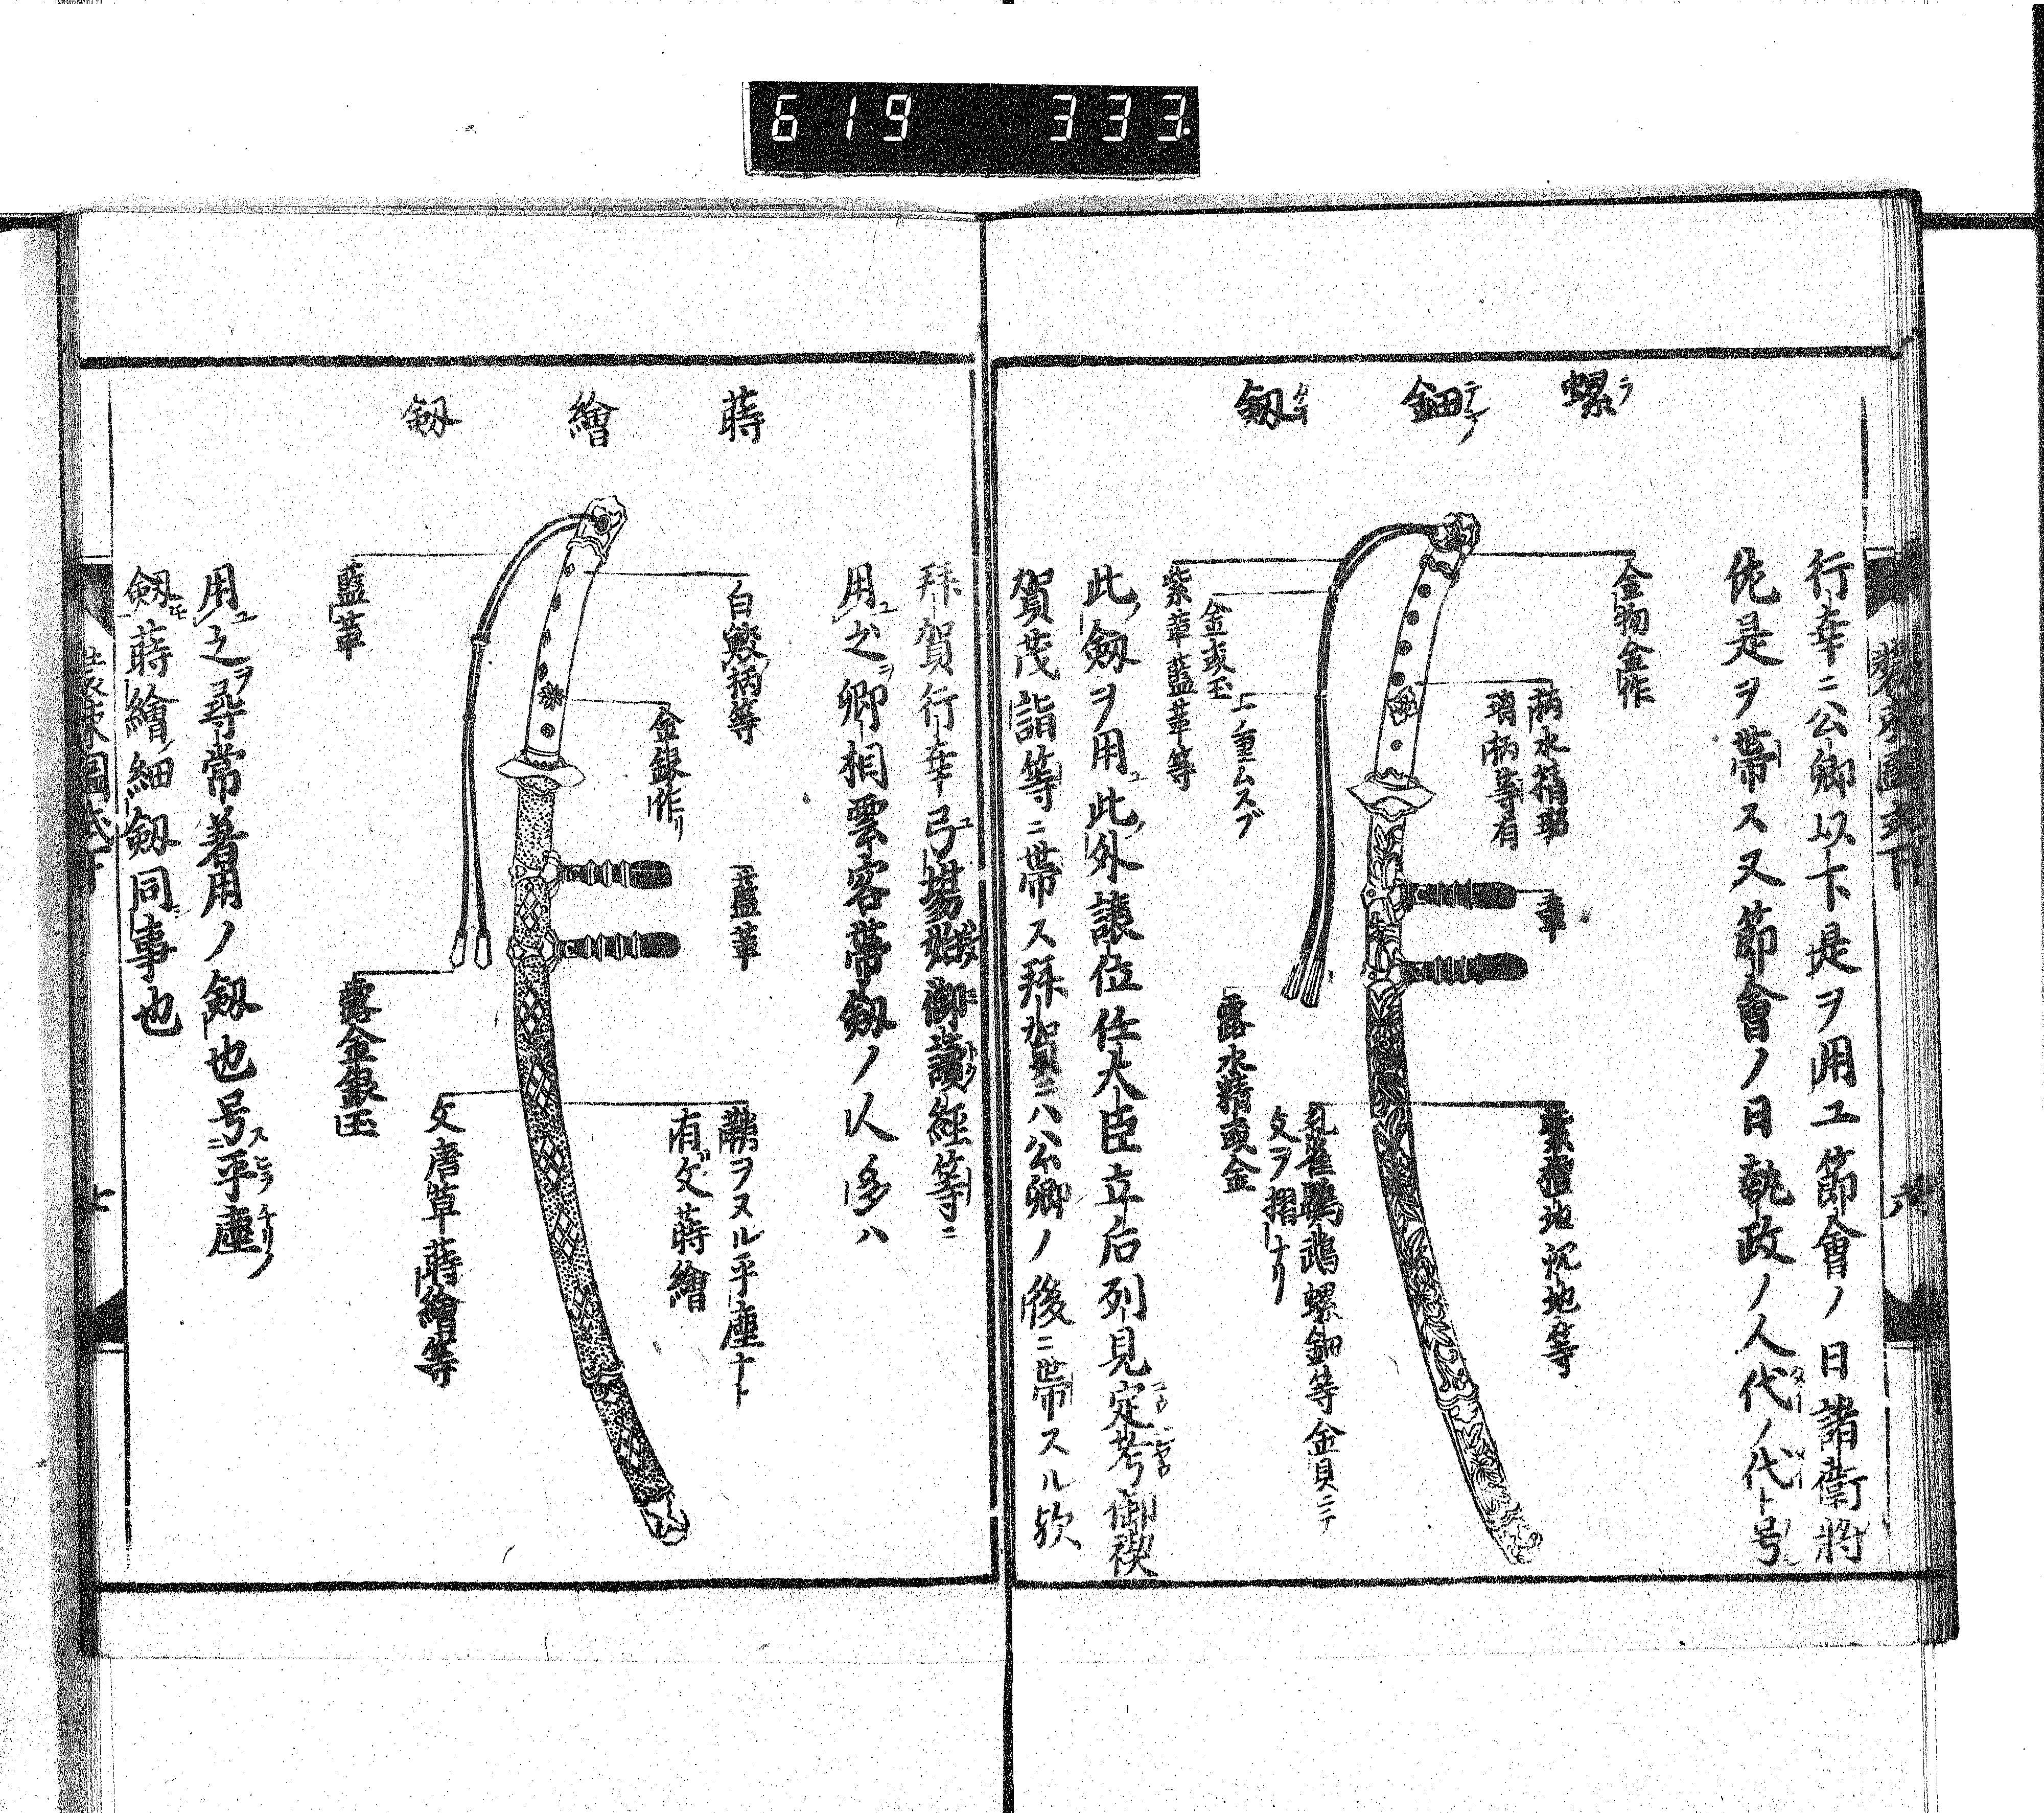 619 333.
裝束圖式下
六
螺鈿劔
行幸ニ公卿以下是ヲ用ユ節會ノ日諸衛將
佐是ヲ帶ス又節會ノ日執政ノ人代ノ代ト号
金物金作
柄水精瑠
璃柄等有
革
紫檀地沉地等
孔雀鸚鵡螺鈿等金貝ニテ
文ヲ摺ナリ
紫革藍革等
金或玉
上ノ重ムスブ
露水精或金
此劔ヲ用ユ此外讓位任大臣立后列見定考御禊
賀茂詣等ニ帶ス拜賀ニハ公卿ノ後ニ帶スル欤
蒔繪劔
拜賀行幸弓場始御讀經等ニ
用之卿相雲客帶劔ノ人多ハ
白鮫柄等
金銀作リ
藍革
鞘ヲヌル平塵ナト
有文蒔繪
藍革
露金銀玉
文唐草蒔繪等
用之ヲ尋常著用ノ劔也号ス平塵
劔ト蒔繪細劔同事也
裝束圖式下
七